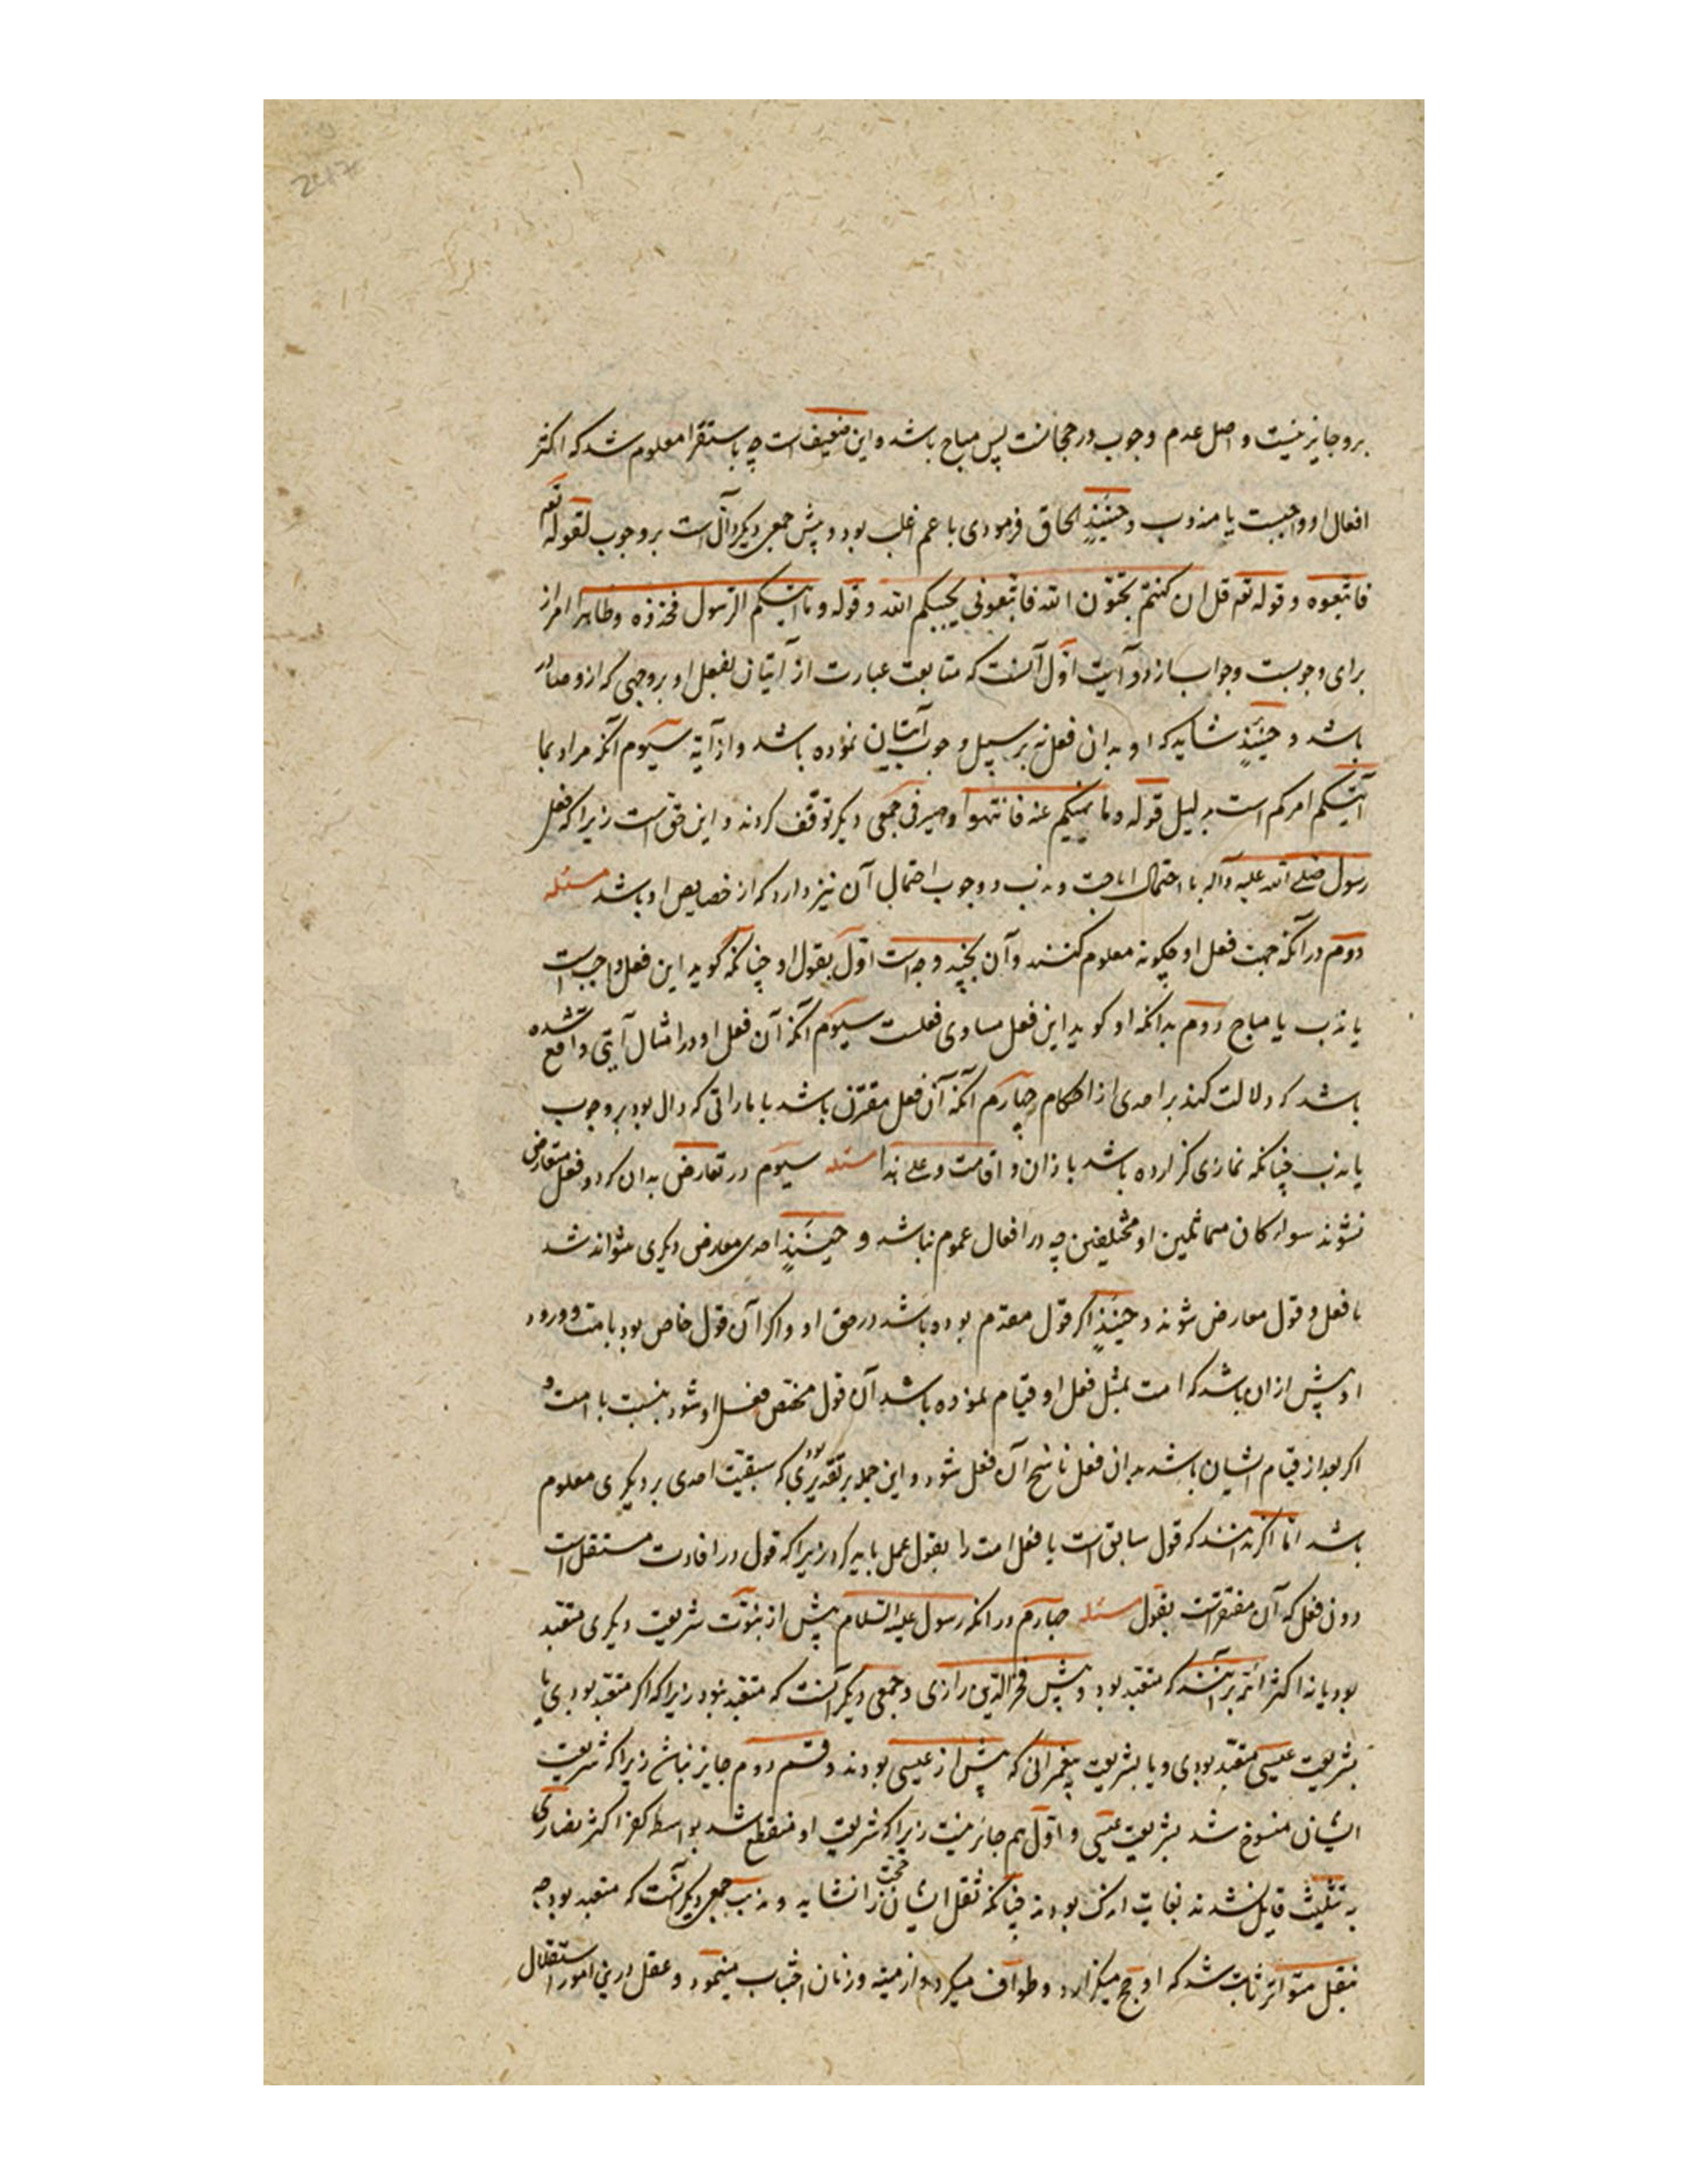 برو جایز نیست و اصل عدم وجوب و رجحانست پس مباح باشد و این ضعیف است چه باستقرا معلوم شد که اکثر
افعال او واجبست یا مندوب و حینئذٍ الحاق فرمودی با عم اغلب بود و پیش جمعی دیگر دال است بر وجوب لقوله تعه
فاتبعوه و قوله تعه قل ان کنتم تحبّون الله فاتبعونی یحببکم الله و قوله و ما اتیکم الرسول فخذوه و ظاهرا امر از
برای وجوبست و جواب از دو آیت اول آنست که متابعت عبارت از آتیان بفعل او بر وجهی که ازو صادر
باشد و حینئذٍ شاید که او بدان فعل نه بر سبیل وجوب آتیان نموده باشد و از آیة سیوم آنکه مراد بما
آتیکم امرکم است بدلیل قوله و ما نهیکم عنه فانتهوا و صیرفی و جمعی دیگر توقف کردند و این حق است زیرا که فعل
رسول صلی الله علیه وآله با احتمال اباحت و ندب و وجوب احتمال آن نیز دارد که از خصایص او باشد مسئله
دوم در آنکه جهت فعل او چگونه معلوم کنند و آن بچند وجه است اول بقول او چنانکه گوید این فعل واجب است
یا ندب یا مباح دوم بدانکه او گوید این فعل مساوی فعلست سیوم آنکه آن فعل او در امثال آیتی واقع شده
باشد که دلالت کند بر احدی از احکام چهارم آنکه آن فعل مقترن باشد باماراتی که دال بود بر وجوب
یا ندب چنانکه نمازی گزارده باشد باذان و اقامت و علی هذا مسئله سیوم در تعارض بدان که دو فعل متعارض
نشوند سواء کان متماثلین او مختلفین چه در افعال عموم نباشد و حینئذٍ احدی معارض دیگری نتواند شد
با فعل و قول معارض شوند و حینئذٍ اگر قول مقدم بوده باشد در حق او و اگر آن قول خاص بود بامت و ورود
او پیش ازان باشد که امت بمثل فعل او قیام نموده باشد آن قول مختص فعل او شود بنسبت با امت و
اگر بعد از قیام ایشان باشد بدان فعل ناسخ آن فعل شود و این جمله بر تقدیری بود که سبقیت احدی بر دیگری معلوم
باشد اما اگر ندانند که قول سابق است یا فعل امت را بقول عمل باید کرد زیرا که قول در افادت مستقل است
دون فعل که آن مفتقر است بقول مسئله چهارم در آنکه رسول علیه السلام پیش از نبوّت شریعت دیگری متعبد
بود یا نه اکثر ائمه بر آنند که متعبد بود و پیش فخر الدین رازی و جمعی دیگر آنست که متعبد نبود زیرا که اگر متعبد بودی یا
بشریعت عیسی متعبد بودی و یا بشریعت پیغمبرانی که پیش از عیسی بودند و قسم دوم جایز نباشد زیرا که شریعت
ایشان منسوخ شد بشریعت عیسی و اول هم جایز نیست زیرا که شریعت او منقطع شد بواسطه کفر اکثر نصاری
به تثلیث قایل نشدند بغایت اندک بودند چنانکه نقل ایشان حجت را نشاید و مذهب جمعی دیگر آنست که متعبد بود چه
بنقل متواتر ثابت شد که او حج میگزارد و طواف میکرد و از میته و زنان اجتناب مینمود و عقل درین امور استقلال